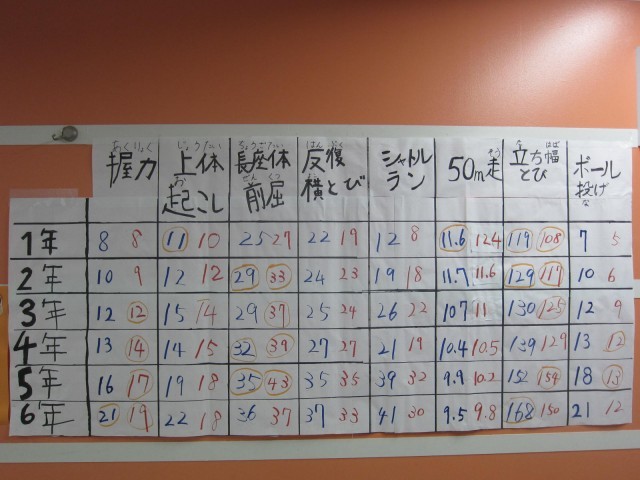 あくりょく じょうたい ちょうざたい はん ぷく そう た はば
握力 上体 長座体 反復 シャトル 50m走 立ち幅 ボール
お ぜん くつ よこ な
起こし 前屈 横とび ラン とび 投げ
1年 8 8 11 10 25 27 22 19 12 8 11.6 12.4 119 108 7 5
2年 10 9 12 12 29 33 24 23 19 18 11.7 11.6 129 117 10 6
3年 12 12 15 14 29 37 25 24 26 22 10.7 11 130 125 12 9
4年 13 14 14 15 32 39 27 27 21 19 10.4 10.5 139 129 13 12
5年 16 17 19 18 35 43 35 35 39 32 9.9 10.2 152 154 18 13
6年 21 19 22 18 36 37 37 33 41 30 9.5 9.8 168 150 21 12